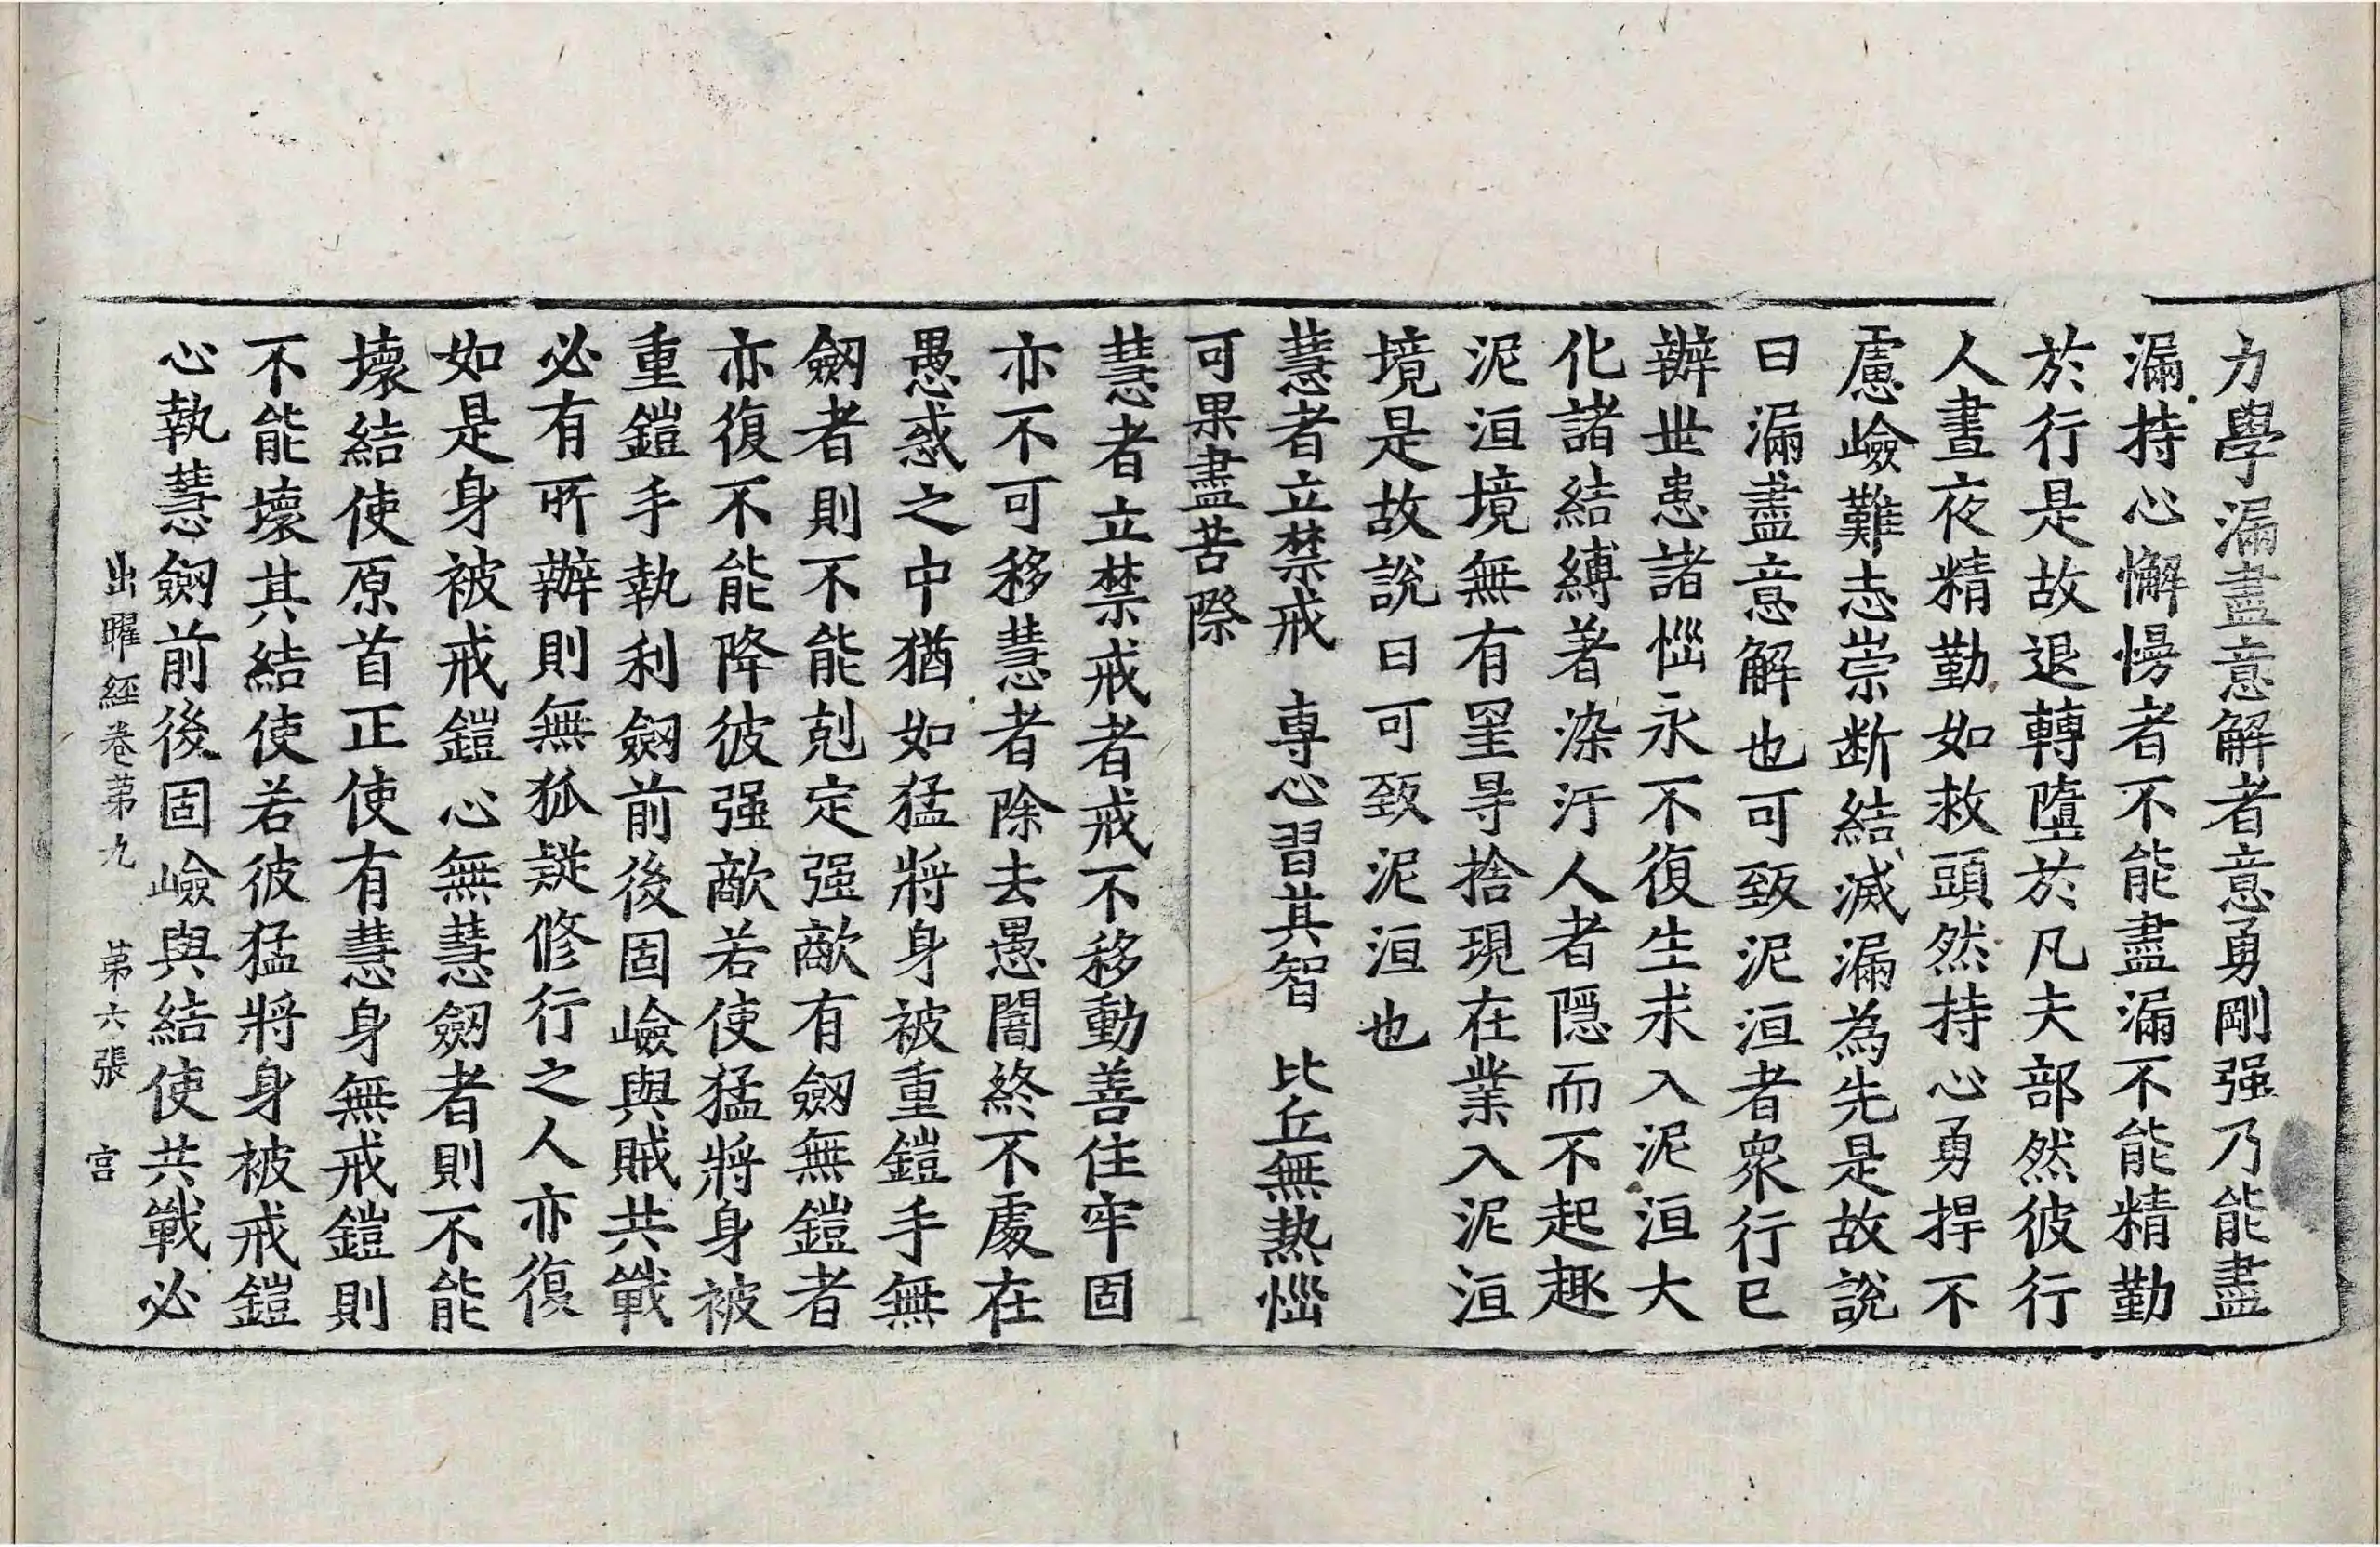 力學漏盡意解者意勇剛强乃能盡
漏持心懈慢者不能盡漏不能精勤
於行是故退轉墮於凡夫部然彼行
人晝夜精勤如救頭然持心勇捍不
慮嶮難志崇断結滅漏為先是故說
曰漏盡意解也可致泥洹者衆行已
辦世患諸惱永不復生求入泥洹大
化諸結縛著染汙人者隱而不起趣
泥洹境無有罣㝵捨現在業入泥洹
境是故說曰可致泥洹也
慧者立禁戒　專心習其智　比丘無熱惱
可果盡苦際
慧者立禁戒者戒不移動善住牢固
亦不可移慧者除去愚闇終不處在
愚惑之中猶如猛將身被重鎧手無
劒者則不能剋定强敵有劒無鎧者
亦復不能降彼强敵若使猛將身被
重鎧手執利劒前後固嶮與賊共戰
必有所辦則無狐疑修行之人亦復
如是身被戒鎧心無慧劒者則不能
壞結使原首正使有慧身無戒鎧則
不能壞其結使若彼猛將身被戒鎧
心執慧劒前後固嶮與結使共戰必
出曜經卷苐九　苐六張　宫